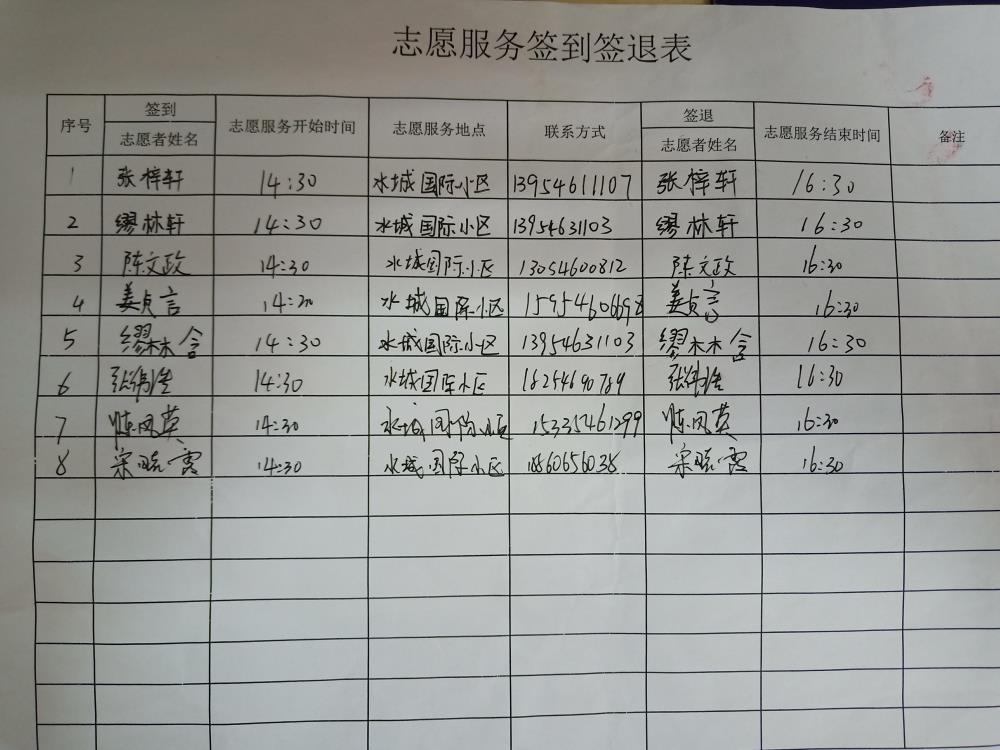 志愿服务签到签退表
序号 签到 志愿者姓名 志愿服务开始时间 志愿服务地点 联系方式 签退 志愿者姓名 志愿服务结束时间 备注
1 张梓轩 14:30 水城国际小区 13954611107 张梓轩 16:30
2 缪林轩 14:30 水城国际小区 13954631103 缪林轩 16:30
3 陈文政 14:30 水城国际小区 13054600812 陈文政 16:30
4 姜贞言 水城国际小区 姜贞言 16:30
5 缪木木含 14:30 水城国际小区 13954631103 缪木木含 16:30
6 14:30 水城国际小区 16:30
7 陈凤英 14:30 水城国际小区 15335461299 陈凤英 16:30
8 宋晓霞 14:30 水城国际小区 宋晓霞 16:30